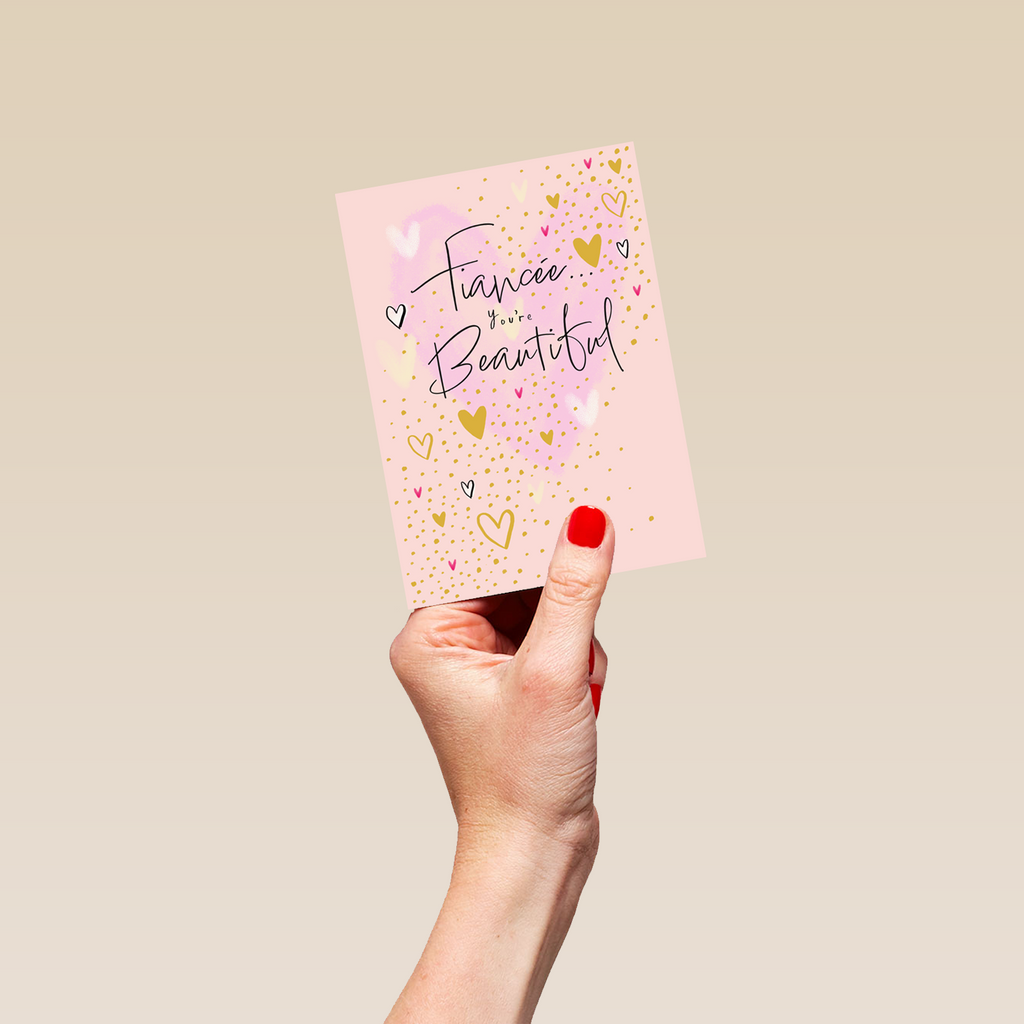 Fiancée...
you're
Beautiful